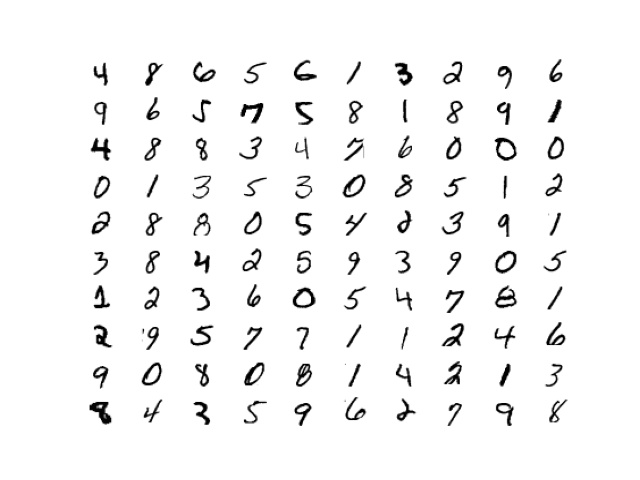 4 8 6 5 6 1 3 2 9 6
9 6 5 7 5 8 1 8 9 1
4 8 8 3 4 7 6 0 0 0
0 1 3 5 3 0 8 5 1 2
2 8 8 0 5 4 2 3 9 1
3 8 4 2 5 9 3 9 0 5
1 2 3 6 0 5 4 7 8 1
2 9 5 7 7 1 1 2 4 6
9 0 8 0 8 1 4 2 1 3
8 4 3 5 9 6 2 7 9 8